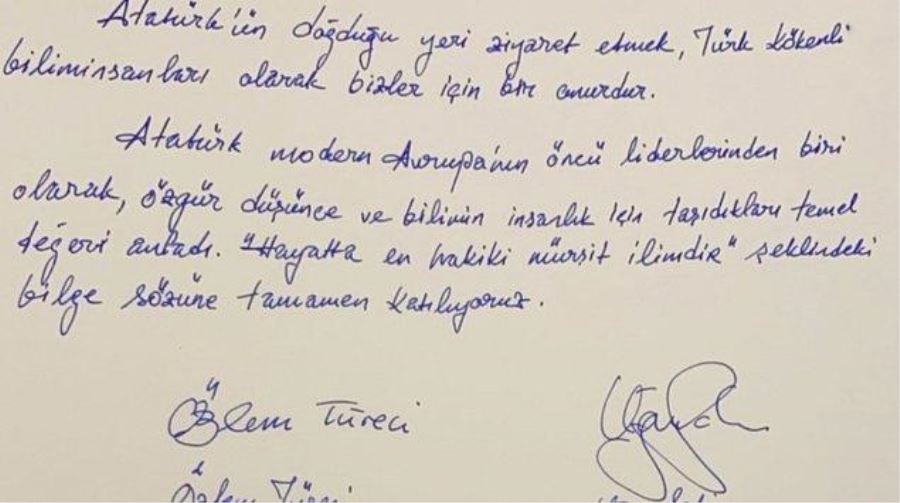 Atatürk'ün doğduğu yeri ziyaret etmek, Türk kökenli
biliminsanları olarak bizler için bir onurdur.
Atatürk modern Avrupa'nın öncü liderlerinden biri
olarak, özgür düşünce ve bilimin insanlık için taşıdıkları temel
değeri anladı. "Hayatta en hakiki mürşit ilimdir" şeklindeki
bilge sözüne tamamen katılıyoruz.
Özlem Türeci
Özlem Türeci